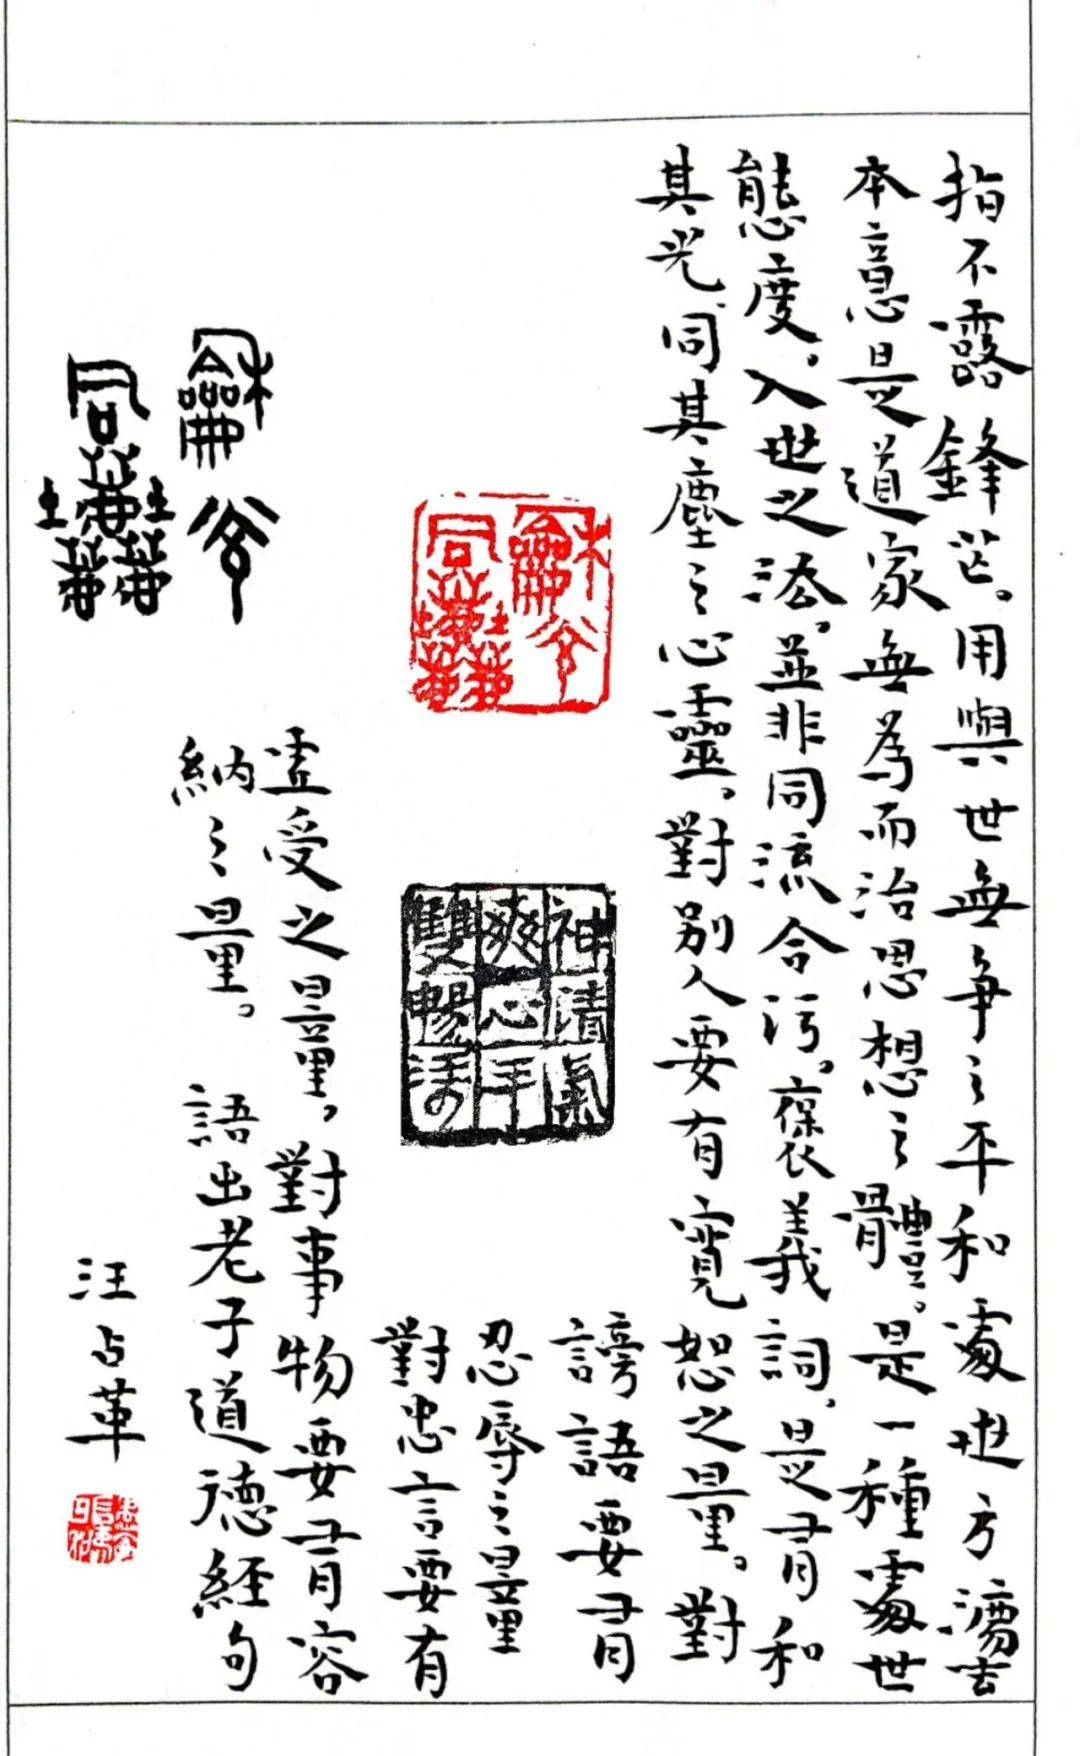 指不露鋒芒。用與世無爭之平和處世方灋。
本意是道家無為而治思想之體。是一種處世
態度。入世之法。並非同流合污。褒義詞。是有和
其光、同其塵之心靈。對別人要有寬恕之量。對
謗語要有
忍辱之量
對忠言要有
虛受之量，對事物要有容
納之量。 語出老子道德經句
龢光
同塵
龢光
同塵
神清氣
爽心手
雙暢活
汪占革